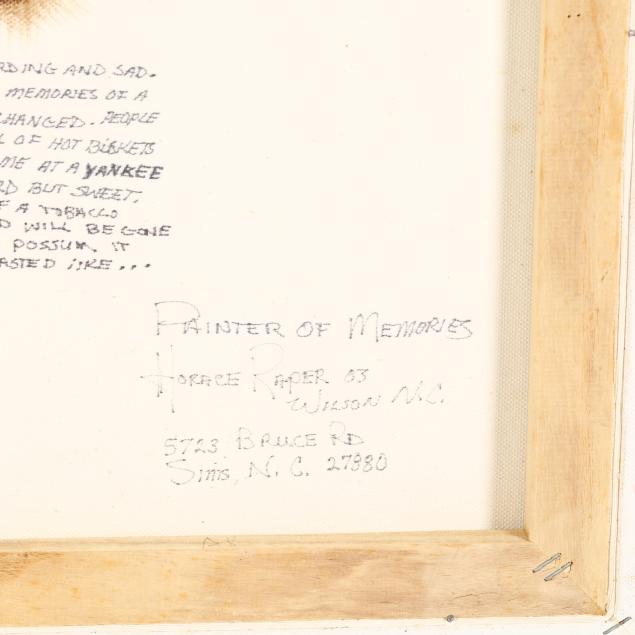 RDING AND SAD.
MEMORIES OF A
CHANGED. PEOPLE
L OF HOT BISKETS
ME AT A YANKEE
RD BUT SWEET.
F A TOBACCO
D WILL BE GONE
POSSUM IT
ASTED LIKE...
PAINTER OF MEMORIES
HORACE RAPER 03
WILSON N.C.
5723 BRUCE RD
Sims, N.C. 27880